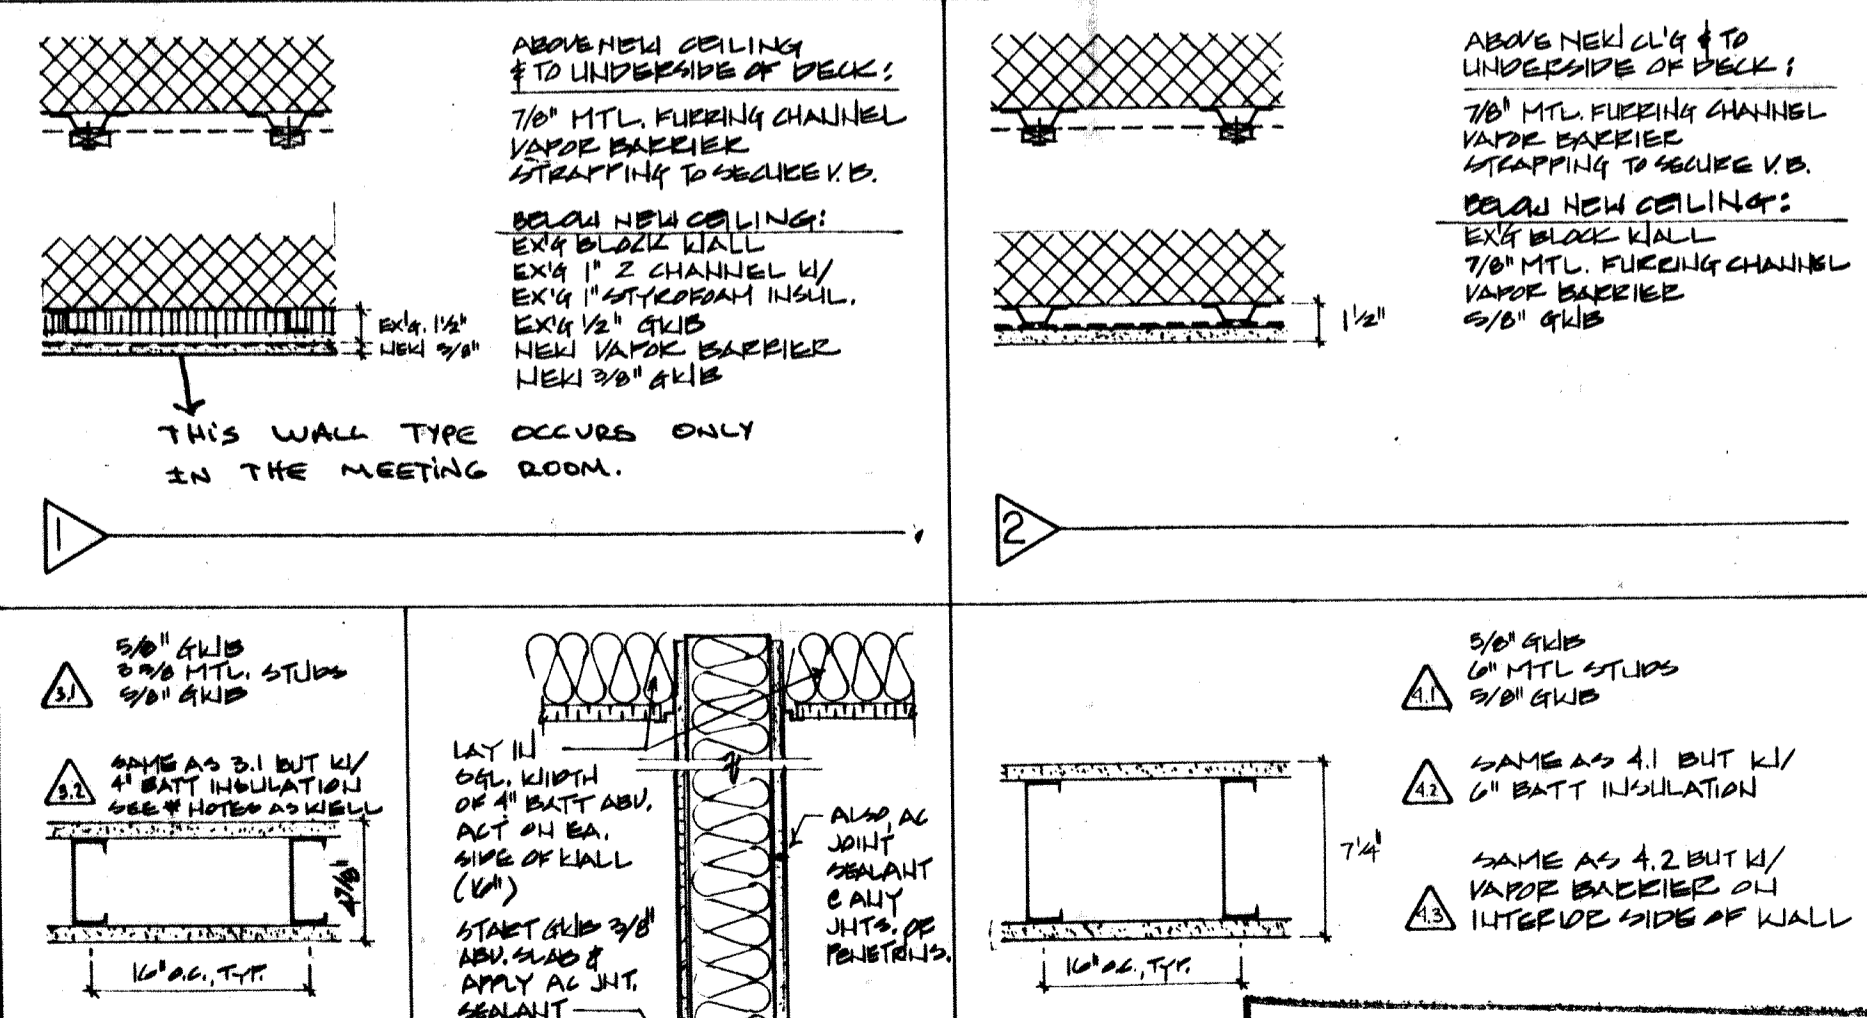 ABOVE NEW CEILING
& TO UNDERSIDE OF DECK:
7/8" MTL. FURRING CHANNEL
VAPOR BARRIER
STRAPPING TO SECURE V.B.
BELOW NEW CEILING:
EX'G BLOCK WALL
EX'G 1" Z CHANNEL W/
EX'G 1" STYROFOAM INSUL.
EX'G 1/2" GWB
NEW VAPOR BARRIER
NEW 3/8" GWB
EX'G. 1 1/2"
NEW 3/8"
THIS WALL TYPE OCCURS ONLY
IN THE MEETING ROOM.
1
ABOVE NEW CL'G & TO
UNDERSIDE OF DECK:
7/8" MTL. FURRING CHANNEL
VAPOR BARRIER
STRAPPING TO SECURE V.B.
BELOW NEW CEILING:
EX'G BLOCK WALL
7/8" MTL. FURRING CHANNEL
VAPOR BARRIER
5/8" GWB
1 1/2"
2
3.1
5/8" GWB
3 5/8 MTL. STUDS
5/8" GWB
3.2
SAME AS 3.1 BUT W/
4" BATT INSULATION
SEE * NOTES AS WELL
4 7/8"
16" O.C., TYP.
LAY IN
SGL. WIDTH
OF 4" BATT ABV.
ACT ON EA.
SIDE OF WALL
(16")
START GWB 3/8"
ABV. SLAB &
APPLY AC JNT.
SEALANT
ALSO, AC
JOINT
SEALANT
@ ANY
JNTS. OR
PENETR'NS.
4.1
5/8" GWB
6" MTL STUDS
5/8" GWB
4.2
SAME AS 4.1 BUT W/
6" BATT INSULATION
4.3
SAME AS 4.2 BUT W/
VAPOR BARRIER ON
INTERIOR SIDE OF WALL
7 1/4"
16" O.C., TYP.